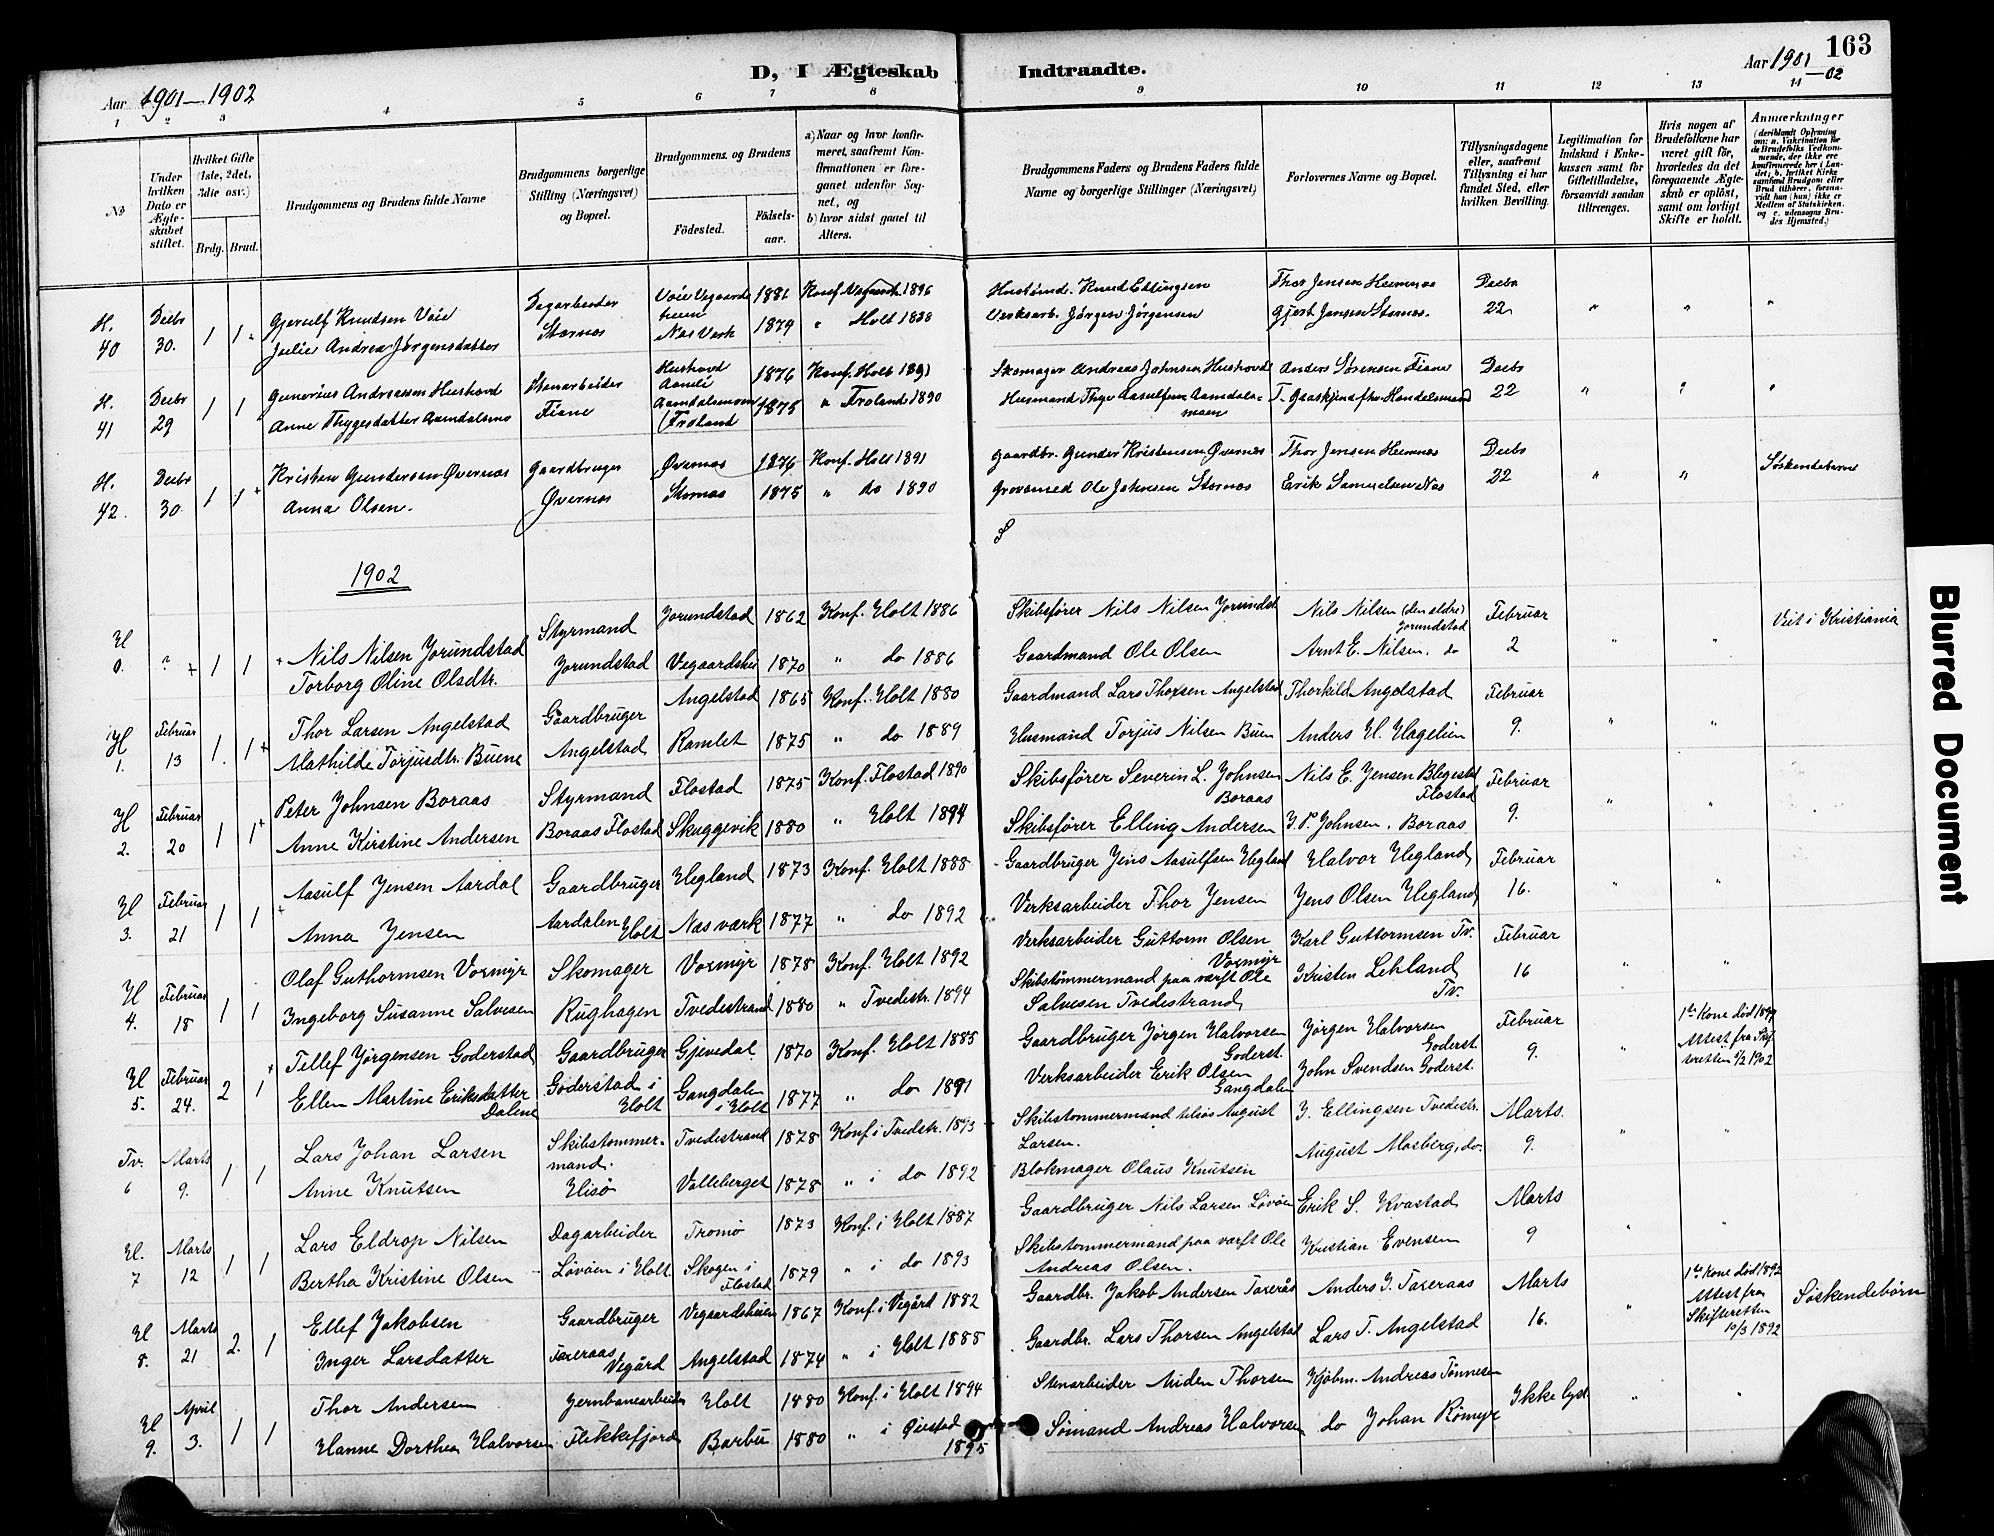 163
D, I Ægteskab Indtraadte.
Aar 1901–1902
Aar 1901–02
1 2 3 4 5 6 7 8 9 10 11 12 13 14
No
Under hvilken Dato er Ægteskabet stiftet.
Hvilket Gifte (1ste, 2det, 3die osv.)
Brdg. Brud.
Brudgommens og Brudens fulde Navne
Brudgommens borgerlige Stilling (Næringsvei) og Bopæl.
Brudgommens og Brudens
Födested.
Födselsaar.
a) Naar og hvor konfirmeret, saafremt Konfirmationen er foreganet udenfor Sognet, og
b) hvor sidst gaaet til Alters.
Brudgommens Faders og Brudens Faders fulde Navne og borgerlige Stillinger (Næringsvei)
Forlovernes Navne og Bopæl.
Tillysningsdagene eller, saafremt Tillysning ei har fundet Sted, efter hvilken Bevilling.
Legitimation for Indskud i Enkekassen samt for Giftetilladelse, forsaavidt saadan tiltrænges.
Hvis nogen af Brudefolkene har været gift för, hvorledes da det foregaaende Ægteskab er oplöst, samt om lovligt Skifte er holdt.
Anmærkninger
(deriblandt Oplysning om: a. Vakcination for de Brudefolks Vedkommende, der ikke ere konfirmerede her i Landet; b. hvilket Kirkesamfund Brudgom eller Brud tilhörer, forsaavidt han (hun) ikke er Medlem af Statskirken, og c. udensogns Brudes Hjemsted.)
H. 40 Decbr 30. 1 1 Gjerulf Knudsen Voie Dagarbeider Voie Vegaardsheien 1881 Konf. Vegaardsh. 1896 Knud Ellingsen Thor Jensen Hemnæs Decbr 22 " " "
Julie Andrea Jørgensdatter Stornæs Næs Verk 1879 " Holt Verksarb. Jørgen Jørgensen Gjert Jensen Stornæs.
H. 41 Decbr 29 1 1 Gunerius Andreassen Hushovd Stenarbeider Hushovd Aamli 1876 Konf. Holt 1891 Skomager Andreas Johnsen Hushovd Anders Sørensen Fiane Decbr 22 " " "
Anne Thygesdatter Aamdalsmo Fiane Aamdalsmoen (Froland 1875 " Froland 1890 Husmand Thyge Aasulfsen Aamdalsmoen
H. 42. Decbr 30. 1 1 Kristen Gundersen Øvernæs Gaardbruger Øvernæs 1876 Konf. Holt 1891 Gaardbr. Gunder Kristensen Øvernæs Thor Jensen Hemnæs Decbr 22 " " Søskendebørn
Anna Olsen. Øvernæs Stornæs 1875 " do 1890 Ole Johnsen Stornæs Erik Samuelsen Næs
1902
H 0. ? 1 1 Nils Nilsen Jorundstad Styrmand Jorundstad 1862 Konf. Holt 1886 Skibsfører Nils Nilsen Jorundst Nils Nilsen (den eldre) Jorundstad Februar 2 " " Viet i Kristiania
Torborg Oline Olsdtr. Jorundstad Vegaardshei 1870 " do 1886 Gaardmand Ole Olsen Arnt E. Nilsen, do
H 1. Februar 13 1. 1 Thor Larsen Angelstad Gaardbruger Angelstad 1865 Konf. Holt 1880 Gaardmand Lars Thorsen Angelstad Thorkild Angelstad Februar 9. " "
Mathilde Torjusdtr. Buene Angelstad Ramlet 1875 " do 1889 Husmand Torjus Nilsen Buen Anders H. Hagelien
H 2. Februar 20 1 1 Peter Johnsen Boraas Styrmand Flostad 1875 Konf. Flostad 1890 Skibsfører Severin L. Johnsen Boraas Nils E. Jensen Flostad Februar 9. " "
Anne Kirstine Andersen Boraas Flostad Skuggevik 1880 " Holt 1894 Skibsfører Elling Andersen J. P. Johnsen, Boraas
H 3. Februar 21 1 1 Aasulf Jensen Aardal Gaardbruger Hegland 1873 Konf. Holt 1888 Gaardbruger Jens Aasulfsen Hegland Halvor Hegland Februar 16. " "
Anna Jensen Aardalen Holt Næs værk 1877 " do 1892 Verksarbeider Thor Jensen Jens Olsen Hegland
H 4. Februar 18 1 1 Olaf Guthormsen Vormyr Skomager Vormyr 1878 Konf. Holt 1892 Verksarbeider Guttorm Olsen Vormyr Karl Guttormsen Tv. Februar 16 " "
Ingeborg Susanne Salvesen Rughagen Tvedestrand 1880 " Tvedestr. 1894 Skibstømmermand paa værft Ole Salvesen Tvedestrand Kristen Lehland Tv.
H 5. Februar 24. 2 1 Tellef Jørgensen Goderstad Gaardbruger Gjevedal 1870 Konf. Holt 1885 Gaardbruger Jørgen Halvorsen Goderst. Jørgen Halvorsen Goderst. Februar 9. " 1te Kone død Attest fra Skifteretten 1902
Ellen Martine Eriksdatter Dalene Goderstad i Holt Gangdalen i Holt 1877 " do 1891 Verksarbeider Erik Olsen Gangdalen John Svendsen Goderst.
Tv. 6 Marts 9. 1 1 Lars Johan Larsen Skibstømmermand. Tvedestrand 1878 Konf i Tvedstr. 1893 Skibstømmermand August Larsen. J. Ellingsen Tvedestr. Marts. 9. " "
Anne Knutsen Hisø Valleberget 1878 " i do 1892 Blokmager Olaus Knutsen August Mosberg, do.
H. 7 Marts 12 1 1 Lars Eldrop Nilsen Dagarbeider Tromø 1873 Konf. i Holt 1887 Gaardbruger Nils Larsen Løvøen Erik S. Kvastad Marts 9 " "
Bertha Kristine Olsen Løvøen i Holt Skogen i Flostad 1879 " i do 1893 Skibstommermand paa værft Ole Andreas Olsen. Kristian Evensen
H 8. Marts 21 2. 1 Ellef Jakobsen Gaardbruger Vegaardsheien 1867 Konf. i Vegård 1882 Gaardbr. Jakob Andersen Taxerås Anders J. Taxeraas Marts 16. " 1te Kone død 1892 Attest fra Skifteretten 10/3 1892 Søskendebörn
Inger Larsdatter Taxeraas Vegård Angelstad 1874 " i Holt 1888 Gaardbr. Lars Thorsen Angelstad Lars T. Angelstad
H 9. April 3. 1 1 Thor Andersen Jernbanearbeider Holt 1880 Konf. i Holt 1894 Stenarbeider Anders Thorsen Kjöbm. Andreas Tönnesen Ikke lyst " "
Hanne Dorthea Halvorsen Flekkefjord Barbu 1880 " i Øiestad 1895 Sömand Andreas Halvorsen do Johan Römyr
Blurred Document